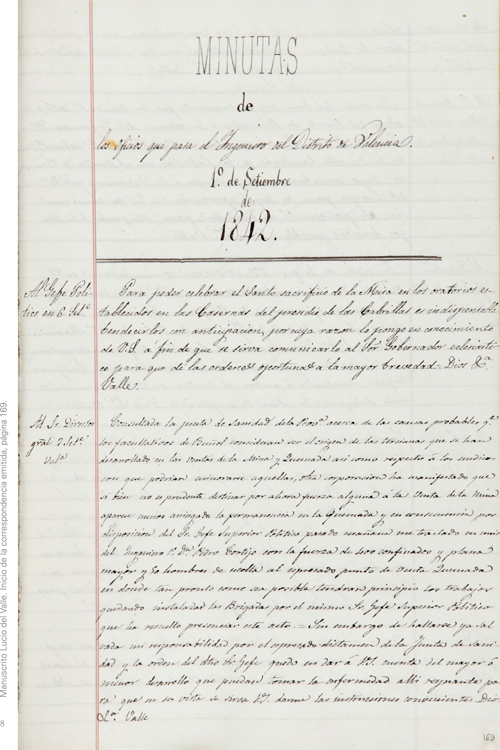 MINUTAS
de
los oficios que pasa el Ingeniero del Distrito de Valencia.
1º. de Setiembre
de
1842.
Al Gefe Polí-
tico en 6 Setᵉ
Para poder celebrar el Santo sacrificio de la Misa en los oratorios es-
tablecidos en las Casernas del presidio de las Cabrillas es indispensable
bendecirlos con anticipacion, por cuya razon lo pongo en conocimiento
de V.S. a fin de que se sirva comunicarlo al Sor. Gobernador eclesiasti-
co para que de las ordenes oportunas a la mayor brevedad = Dios &ª.
Valle.
Al Sr. Director
gral. 7 Setᵉ.
Valª
Consultada la junta de Sanidad de la Provª acerca de las causas probables qᵉ
los facultativos de Buñol consideran ser el origen de las tercianas que se han
desarrollado en las Ventas de la Mina y Quemada asi como respecto á los medios
con que podrian minorarse aquellas, dha corporacion ha manifestado que
si bien no es prudente destinar por ahora fuerza alguna á la Venta de la Mina
aparece menos arriesgada la permanencia en la Quemada y en consecuencia por
disposicion del Sr. Gefe Superior Politico pasado mañana me traslado en union
del Dn. Pedro Cortijo con la fuerza de 400 confinados y plana
mayor y 30 hombres de escolta al espresado punto de Venta Quemada
en donde tan pronto como sea posible tendran principio los trabajos
quedando instaladas las Brigadas por el mismo Sr. Gefe Superior Politico
que ha resuelto presenciar este acto. = Sin embargo de hallarse ya sal-
vada mi responsabilidad por el espresado dictamen de la Junta de Sani-
dad y la orden del dho Sr. Gefe quedo en dar á V.S. cuenta del mayor ó
menor desarrollo que puedan tomar la enfermedad alli reynante pa-
ra que en su vista se sirva V.S. darme las instrucciones convenientes. Dios
&ª. Valle
169
Manuscrito Lucio del Valle. Inicio de la correspondencia emitida, página 169.
8